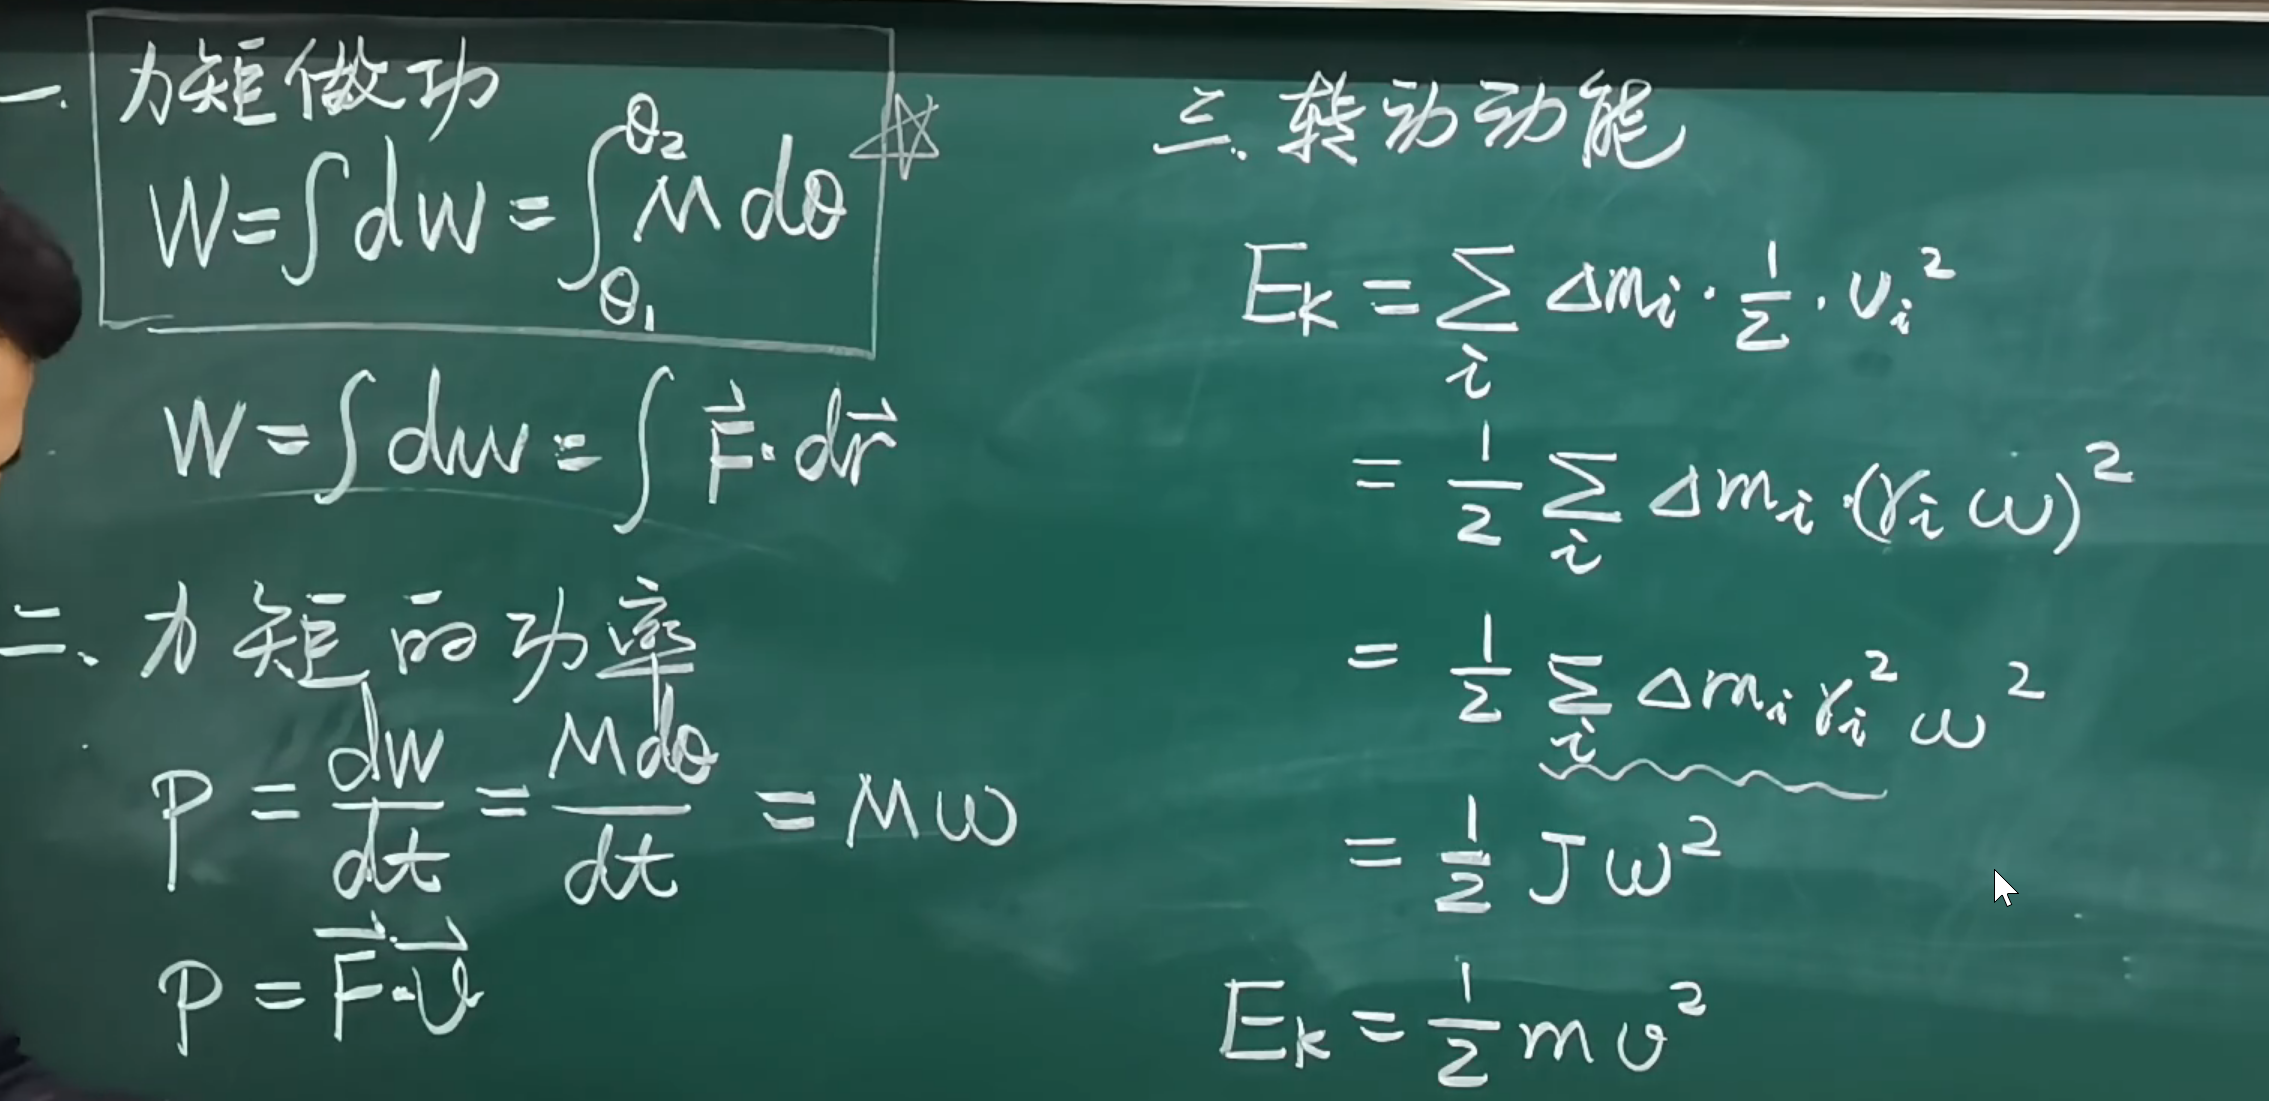 一. 力矩做功
W=∫dW=∫_{θ₁}^{θ₂} M dθ ☆
W=∫dW=∫F⃗·dr⃗
二、力矩的功率
P = dW/dt = Mdθ/dt = Mω
P = F⃗·v⃗
三.转动动能
E_k = Σ_i Δm_i · 1/2 · v_i²
= 1/2 Σ_i Δm_i·(r_i ω)²
= 1/2 Σ_i Δm_i r_i² ω²
= 1/2 J ω²
E_k = 1/2 m v²